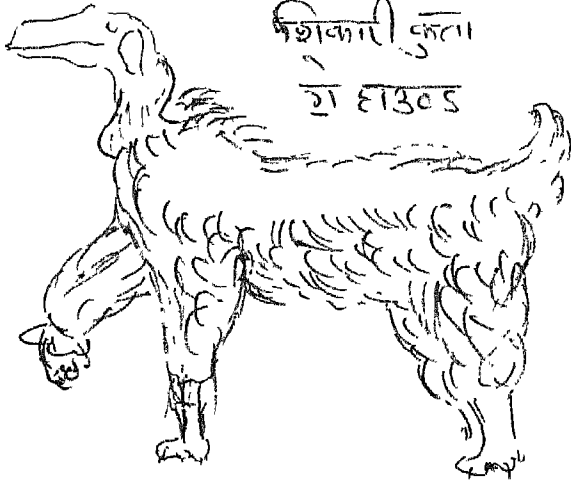 शिकारी कुत्ता
ग्रे हाउण्ड